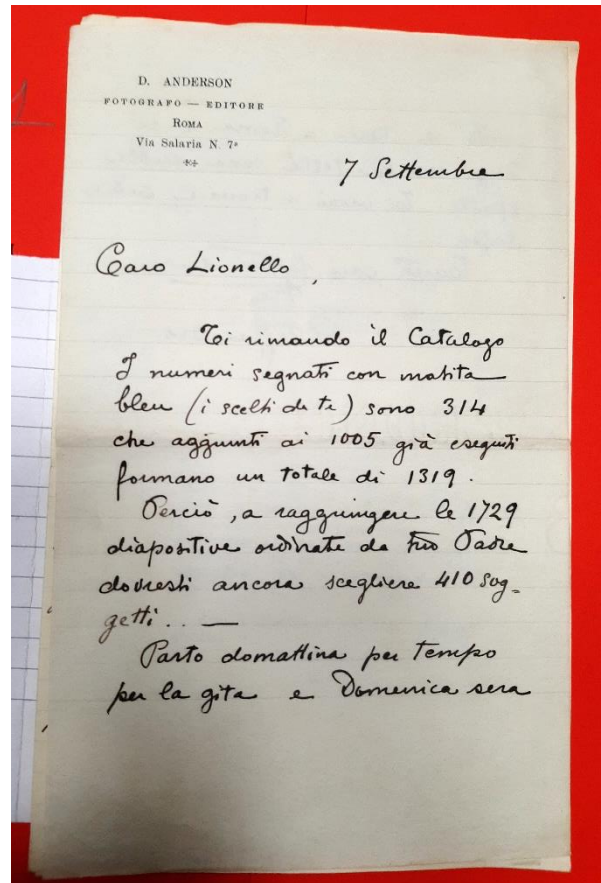 D. ANDERSON
FOTOGRAFO — EDITORE
ROMA
Via Salaria N. 7a
7 Settembre
Caro Lionello,
Ti rimando il Catalogo
I numeri segnati con matita
bleu (i scelti da te) sono 314
che aggiunti ai 1005 già eseguiti
formano un totale di 1319.
Perciò, a raggiungere le 1729
diapositive ordinate da tuo Padre
dovresti ancora scegliere 410 sog=
getti.. —
Parto domattina per tempo
per la gita e Domenica sera